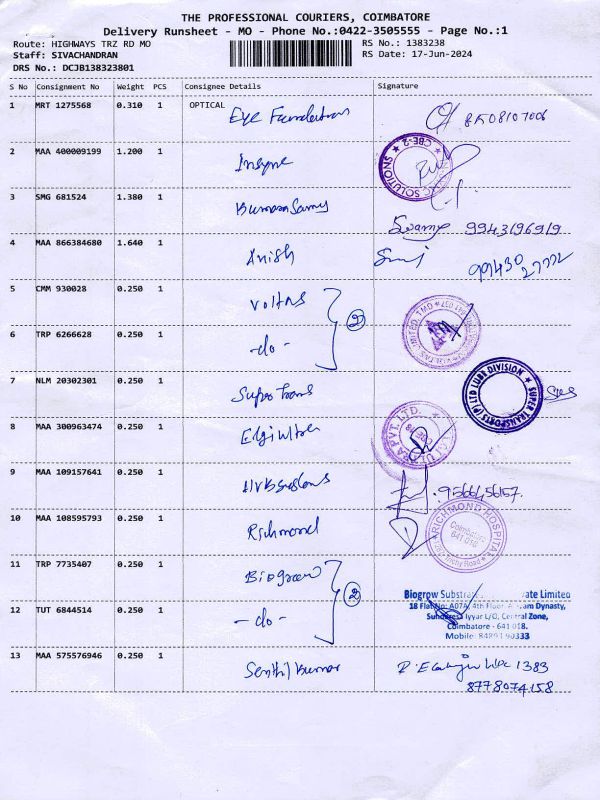 THE PROFESSIONAL COURIERS, COIMBATORE
Delivery Runsheet - MO - Phone No.:0422-3505555 - Page No.:1
Route: HIGHWAYS TRZ RD MO RS No.: 1383238
Staff: SIVACHANDRAN RS Date: 17-Jun-2024
DRS No.: DCJB138323801
S No Consignment No Weight PCS Consignee Details Signature
1 MRT 1275568 0.310 1 OPTICAL Eye Foundation
2 MAA 400009199 1.200 1 CBE-2 SOLUTIONS
3 SMG 681524 1.380 1 Kumarasamy Swamy 9943196919
4 MAA 866384680 1.640 1 Anish 9943027772
5 CMM 930028 0.250 1 Voltas
6 TRP 6266628 0.250 1 -do- 2
7 NLM 20302301 0.250 1 Super Trans SUPER TRANSPORTS (P) LTD LUBE DIVISION
8 MAA 300963474 0.250 1 Elgi Ultra PVT. LTD.
9 MAA 109157641 0.250 1 9566456157
10 MAA 108595793 0.250 1 Richmond RICHMOND HOSPITAL
Coimbatore
641 018
Trichy Road
11 TRP 7735407 0.250 1 Biogrow Biogrow Substrate Private Limited
18 Flat No: A07A, 4th Floor, Dynasty,
12 TUT 6844514 0.250 1 -do- 2 Iyyar L/O, Central Zone,
Coimbatore - 641 018.
Mobile: 90333
13 MAA 575576946 0.250 1 Senthil Kumar 1383
8778074158